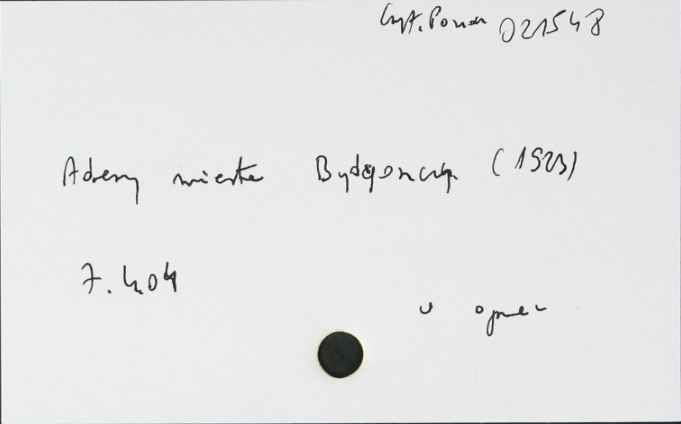 Czyt. Pomor 021548
Adresy miasta Bydgoszczy (1923)
7.404
w oprac